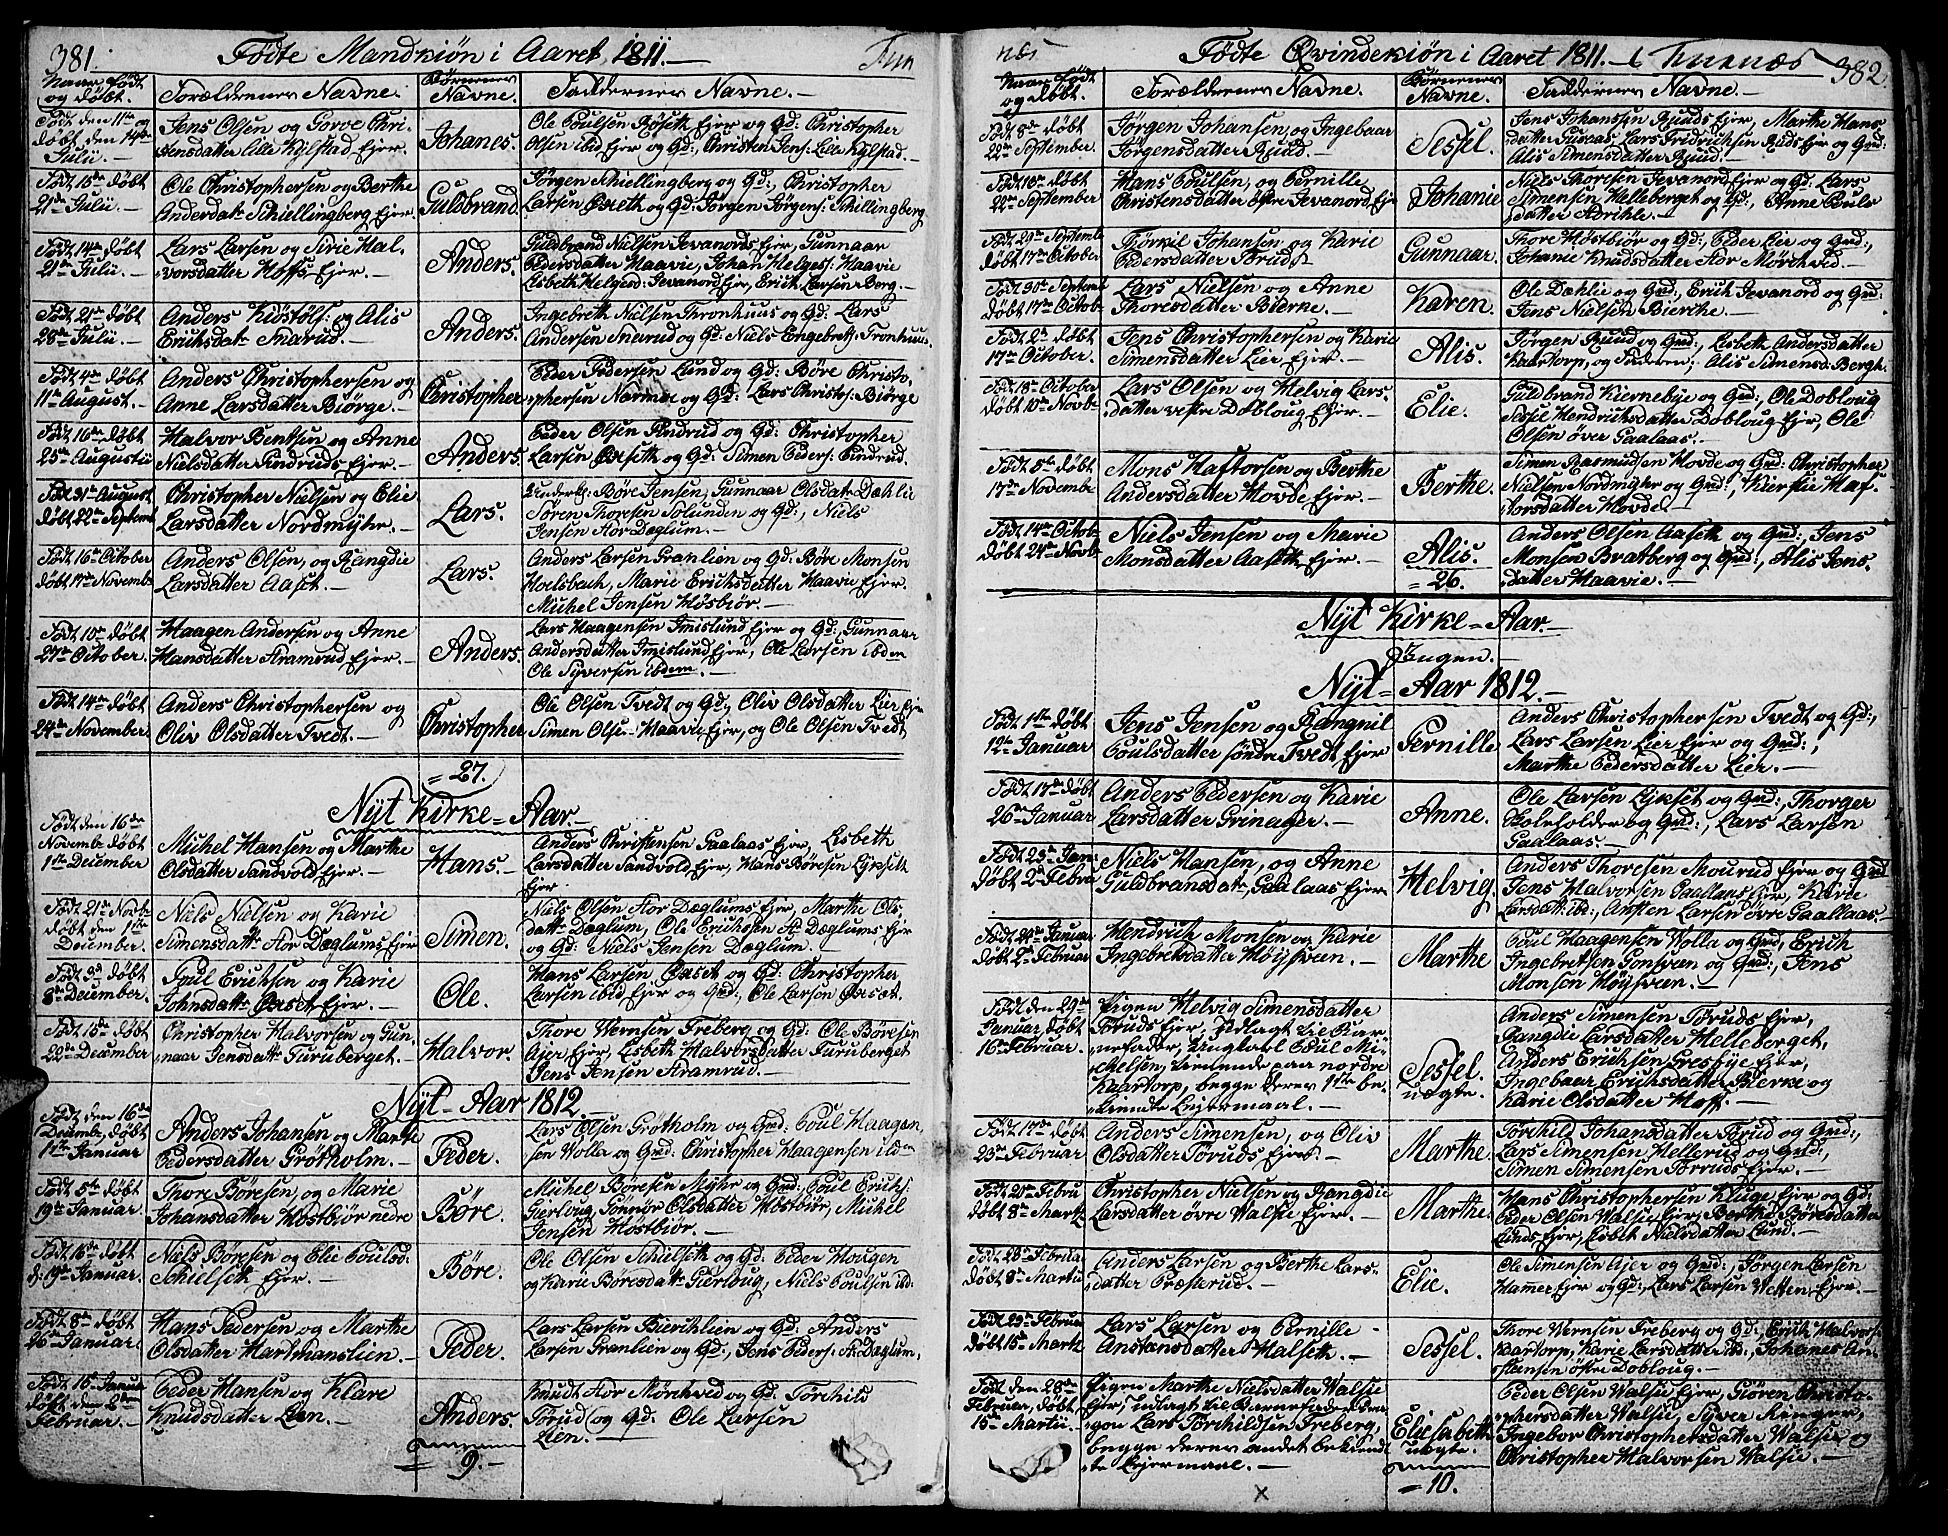 381. Födte Mandkiøn i Aaret 1811.— Fun
Naar Födt og döbt. Forældrenes Navne. Børnenes Navne. Faddernes Navne.
Födt den 11te og döbt den 14de Julii. Jens Olsen og Christensdatter lille Kylstad Ejer. Johanes. Ole Poulsen Røseth Ejer og Gd: Christopher Olsen ibid Ejer og Gd:, Christen Jens: Lille Kylstad.—
Födt 15de döbt 21de Julii.— Ole Christophersen og Berthe Andersdatr Schiellingberg Ejer. Guldbrand. Jørgen Schiellingberg og Gd:, Christopher Larsen og Gd: Jørgen Jørgens: Schillingberg
Födt 14de döbt 21de Julii.— Lars Larsen og Sirie Halvorsdatter Hoffs Ejer.— Anders. Guldbrand Nielsen Jevanords Ejer, Gunnaar Pedersdatter Haavie, Johan Helges: Haavie Lisbeth Helgesd: Jevanord Ejer, Erick Larsen Berg.—
Födt 21de döbt 28de Julii.— Anders Kiöstöls: og Alis Erichsdatr Snarud.— Anders. Ingebreth Nielsen Thronhuus og Gd: Lars Andersen Snerud og Gd: Niels Engebreths: Tronhuus
Födt 4de döbt 11te August.— Anders Christophersen og Anne Larsdatter Biørge.— Christopher Peder Pedersen Lund og Gd: Børe Christophersen Narmoe og Gd: Lars Christs: Biørge
Födt 16de döbt 25de Augustii Halvor Bentsen og Anne Nielsdatter Findruds Ejer.— Anders. Peder Olsen Findrud og Gd: Christopher Larsen og Gd: Simen Peders: Findrud.
Födt 31te August döbt 22de Septembr Christopher Nielsen og Elie Larsdatter Nordmÿhr.— Lars. Børe Jensen, Gunnaar Olsdatr Dæhlie Sören Thoresen Solunden og Gd:, Niels Jensen Stor Dæglum.—
Födt 16de October döbt 17de Novembr Anders Olsen, og Rangdie Larsdatter Aaset.— Lars. Anders Larsen Granlien og Gd: Børe Monsen Holsbach, Marie Erichsdatter Haavie Ejer. Michel Jensen Høsbiör.—
Födt 10de döbt 27de October. Haagen Andersen og Anne Hansdatter Stramrud Ejer.— Anders. Lars Haagensen Imislund Ejer og Gd: Gunnaar Andersdatter Imislund Ejer, Ole Larsen ibdem Ole Syversen ibdem.—
Födt 14de döbt 24de November Anders Christophersen og Oliv Olsdatter Tvedt.— Christopher Ole Olsen Tvedt og Gd:, Oliv Olsdatter Lier Ejer Simen Olsen Haavie Ejer, og Ole Olsen Tvedt
= 27.
Nÿt Kirke=Aar.—
Födt den 16de Novembr döbt 1ste December Michel Hansen og Marthe Olsdatter Sandvold Ejer.— Hans.— Anders Christensen Gaalaas Ejer, Lisbeth Larsdatter Sandvold Ejer, Hans Børesen Ejer
Födt 21de Novbr döbt den 1ste December. Niels Nielsen og Karie Simensdatr Stor Dæglums Ejer Simen. Niels Olsen Stor Dæglums Ejer, Marthe Olsdatr Dæglum, Ole Erichsen St. Dæglums Ejer og Gd: Niels Jensen Dæglum.—
Födt 3de döbt 8de December. Poul Erichsen og Karie Johnsdatr Ejer.— Ole. Hans Larsen og Gd: Christopher Larsen ibid Ejer og Gd:, Ole Larsen
Födt 15de döbt 22de December Christopher Halvorsen og Gunnaar Jensdatr Furuberget.— Halvor. Thore Vernsen Freberg og Gd: Ole Børesen Ajer Ejer, Lisbeth Halvorsdatter Furuberget Jens Jensen Stramrud.—
Nÿt=Aar 1812.
Födt den 16de Decembr döbt 1ste Januar Anders Johansen og Marthe Pedersdatter Grötholm.— Peder. Lars Olsen Grötholm og Gd: Poul Haagensen Wolla og Gd: Christopher Haagensen ibdm
Födt 5te döbt 19de Januar. Thore Børesen, og Marie Johansdatter Høstbiör nedre Børe. Michel Børesen Myhr og Gd: Poul Erichs: Gierloug, Gonnor Olsdatter Høstbiör, Michel Jensen Høstbiör.—
Födt 16de döbt d: 19de Januar. Niels Børesen og Elie Poulsd: Schielseth Ejer.— Børe. Ole Olsen Schielseth og Gd: Peder Hougen og Karie Børesdatr Gierloug, Niels Poulsen ibd:
Födt 8de döbt 26de Januar. Hans Pedersen og Marthe Olsdatter Hartmanslien.— Peder. Lars Larsen Bierchlien og Gd: Anders Larsen Granlien og Gd:, Jens Peders: St. Dæglum.
Födt 15de Januar döbt den 2den Februar.— Peder Hansen og Klare Knudsdatter Lien.— Anders. Knudt Stor Mörchved og Gd: Torchild Torud og Gd: Ole Larsen Lien.—
= 9.—
næs Födte Qvindekiön i Aaret 1811.— Furnæs 382
Naar födt og döbt. Forældrenes Navne. Børnenes Navne. Faddernes Navne.
Födt 8de döbt 22de September. Jørgen Johansen, og Ingebaar Jørgensdatter Ruud.— Sessel. Jens Johansen Ruuds Ejer, Marthe Hansdatter Lars Fridrichsen Ruds Ejer og Gd: Alis Simensdatter Ruud.—
Födt 10de döbt 22de September Hans Poulsen, og Pernille Christensdatter östre Jevanord Ejer Johanie Niels Thoresen Jevanord Ejer og Gd: Lars Simensen Helleberget og Gd:, Anne Poulsdatter
Födt 29de Septembr döbt 17de October Torkil Johansen og Karie Pedersdatter Torud,— Gunnaar. Thore Høstbiör og Gd:, Peder Lier og Gd:, Johanie Knudsdatter Stor Mörchved.—
Födt 30te Septembr döbt 17de Octobr Lars Nielsen og Anne Thoresdatter Bierke.— Karen. Ole Dæhlie og Gd:, Erich Jevanord og Gd: Jens Nielsen Bierche.—
Födt 2de döbt 17de October. Jens Christophersen og Karie Simensdatter Lier Ejer.— Alis. Jørgen Ruud og Gd:, Lisbeth Andersdatter Kaastorp, og Alis Simensd: Bergh
Födt 18de October döbt 10de Novbr Lars Olsen og Helvig Larsdatter vestre Dobloug Ejer.— Elie. Guldbrand Kiernebÿe og Gd:, Ole Dobloug Sesil Hendrichsdatter Dobloug Ejer, Ole Olsen övre Gaalaas.—
Födt 5te döbt 17de Novembr Mons Haftorsen og Berthe Andersdatter Hovde Ejer.— Berthe. Simen Rasmudsen Hovde og Gd: Christopher Nielsen Nordmyhr og Gd:, Kierstie Haftorsdatter Hovde
Födt 14de Octobr döbt 24de Novbr Niels Jensen og Marie Monsdatter Aaseth Ejer.— Alis. Anders Olsen Aaseth og Gd: Jens Monsen Bratberg og Gd:, Alis Jensdatter Haavie.—
= 26.
Nÿt Kirke=Aar.—
Ingen.—
Nÿt=Aar 1812.—
Födt 1ste döbt 12te Januar Jens Jensen og Rangnil Poulsdatter söndre Tvedt Ejer Pernille Anders Christophersen Tvedt og Gd:, Lars Larsen Lier Ejer og Gd:, Marthe Pedersdatter Lier.—
Födt 17de döbt 26de Januar Anders Pedersen og Karie Larsdatter Grinager.— Anne. Ole Larsen Lykset og Gd:, Thorger Boleholder og Gd:, Lars Larsen Gaalaas.—
Födt 23de Jan: döbt 2de Februar Niels Hansen, og Anne Guldbransdatr Gaalaas Ejer Helvig. Anders Thoresen Mourud Ejer og Gd Jens Halvorsen Gaallaas Ejer, Karie Larsdatr ibd:, Ansten Larsen övre Gaallaas.—
Födt 24de Januar döbt 2de Februar Hendrich Monsen og Karie Ingebretsdatter Høysveen.— Marthe Poul Haagensen Wolla og Gd, Erich Ingebretsen Jonsveen og Gd:, Jens Monsen Høysveen.—
Födt den 29de Januar döbt 16de Februar. Pigen Helvig Simensdatter Toruds Ejer, udlagt til Barnefader, Ungkarl Poul Michelsen, tienende paa nordre Kaastorp, begge deres 1ste bekiendte Lejermaal.— Sessel. uægte. Anders Simensen Toruds Ejer, Rangdie Larsdatter Helleberget, Anders Erichsen Gresbye Ejer, Ingebaar Erichsdatter Bierke og Karie Olsdatter Hoff.—
Födt 17de döbt 23de Februar Anders Simensen, og Oliv Olsdatter Toruds Ejer.— Marthe. Torchild Johansdatter Torud og Gd:, Lars Simensen, og Gd:, Simen Simensen Torruds Ejer.—
Födt 20de Februar döbt 8de Martz Christopher Nielsen og Rangdie Larsdatter övre Walsie Ejer.— Marthe. Hans Christophersen Kluge Ejer og Gd: Peder Olsen Walsie Ejer, Berthe Börresdatter Lunds Ejer, Lisbet Nielsdatter Lund.—
Födt 28de Februar döbt 8de Martii Anders Larsen og Berthe Larsdatter Præsterud.— Elie. Ole Simensen Ajer og Gd:, Jørgen Larsen Hammer Ejer og Gd:, Lars Larsen Wetten Ejer.
Födt 29de Februar döbt 15de Martz Lars Larsen og Pernille Anstensdatter Halseth.— Sessel. Thore Vernsen Freberg og Gd: Erich Halvors: Kaastorp, Karie Larsdatter ibd:, Johanes Anstensen östre Dobloug.—
Födt den 28de Februar, döbt 15de Martii. Pigen Marthe Nielsdatter Walsie Ejer, udlagt til Barnefader Lars Torchildsen Freberg, begge deres andet bekiendte Lejermaal.— Eliesabeth uægte. Peder Olsen Walsie Ejer, Giören Christophersdatter Walsie, Syver Ringer, Ingebor Christophersdatter Walsie og Christopher Halvorsen Walsie.—
= 10.
x